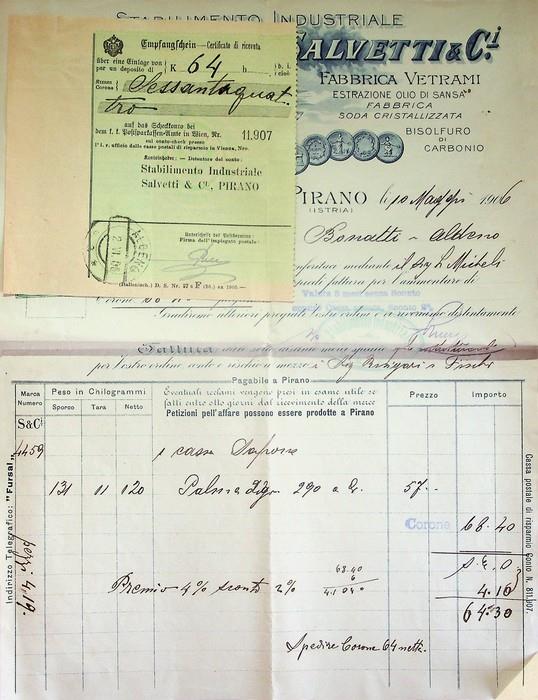 STABILIMENTO INDUSTRIALE
SALVETTI & C.i
FABBRICA VETRAMI
ESTRAZIONE OLIO DI SANSA
FABBRICA
SODA CRISTALLIZZATA
BISOLFURO
DI
CARBONIO
PIRANO
(ISTRIA)
li 10 Maggio 1906
Bonatti - Aldeno
Empfangschein — Certificato di ricevuta
über eine Einlage von
per un deposito di
K 64 h
Sessantaquat
tro
auf das Scheckkonto bei
dem k. k. Postsparkassen-Amte in Wien, Nr.
11.907
sul conto-check presso
l'i. r. ufficio delle casse postali di risparmio in Vienna, Nro.
Kontoinhaber: — Detentore del conto:
Stabilimento Industriale
Salvetti & C.i, PIRANO
Unterschrift des Postbeamten:
Firma dell'impiegato postale:
(Italienisch.) D. S. Nr. 27 a F
mediante il Sig L. Micheli
fattura per l'ammontare di
Valuta 3 mesi senza sconto
Fattura
per vostro ordine conto e rischio a mezzo
Pagabile a Pirano
Eventuali reclami vengono presi in esame utile se
fatti entro otto giorni dal ricevimento della merce
Petizioni pell'affare possono essere prodotte a Pirano
Marca
Numero
Peso in Chilogrammi
Sporco Tara Netto
Prezzo
Importo
S&C.i
4459
1 cassa Sapone
131 11 120
290 a
57 --
Corone 68.40
68.40
6
4.1040
Premio 4% sconto 2%
4.10
64.30
Spedire Corone 64 nette.
Indirizzo Telegrafico: "Fursal"
Cassa postale di risparmio Conto N. 811.907.